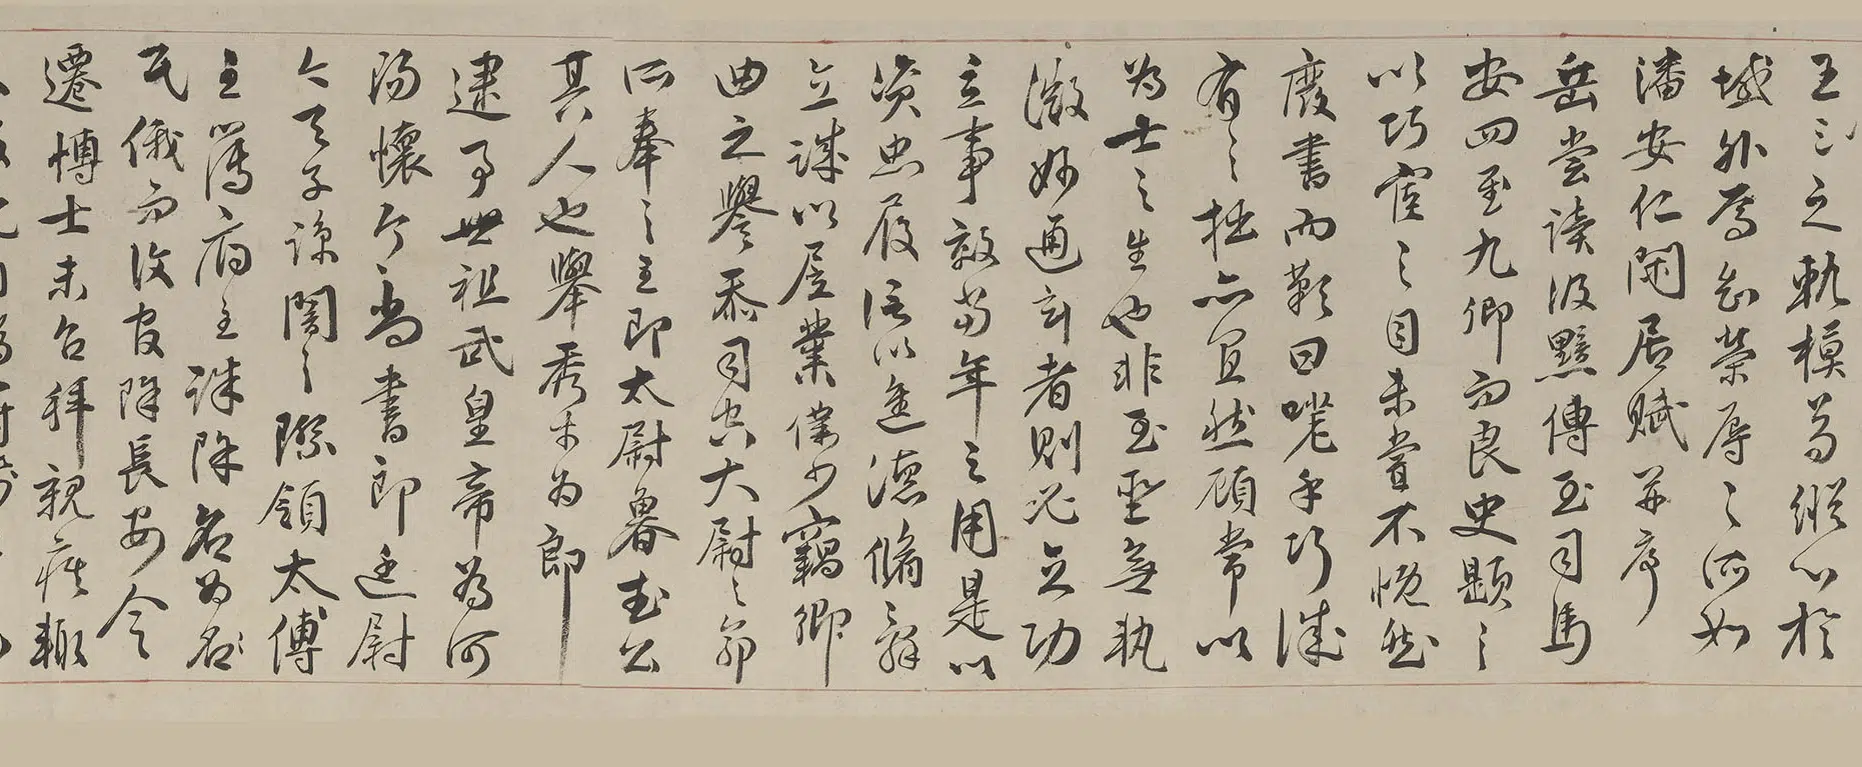 王之軌模苟縱心於
域外焉知榮辱之所如
潘安仁閒居賦并序
岳嘗讀汲黯傳至司馬
安四至九卿而良史題之
以巧宦之目未嘗不慨然
廢書而歎曰嗟乎巧誠
有之拙亦宜然顧常以
為士之生也非至聖無軌
微妙通玄者則必立功
立事效當年之用是以
資忠履信以進德脩辭
立誠以居業僕少竊鄉
曲之譽忝司空大尉之命
所奉之主即太尉魯武公
其人也舉秀才為郎
逮事世祖武皇帝為河
陽懷令尚書郎廷尉
今天子諒闇之際領太傅
主簿府主誅除名為名
民俄而復官除長安令
遷博士未召拜親疾輒